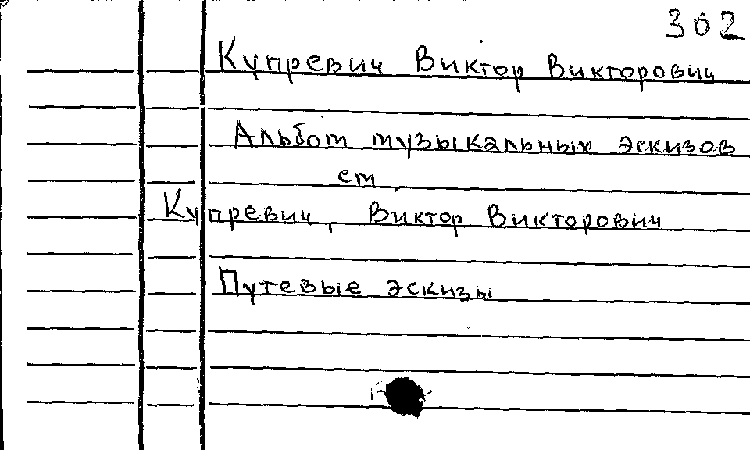 302
Купревич Виктор Викторович
Альбом музыкальных эскизов
см.
Купревич, Виктор Викторович
Путевые эскизы